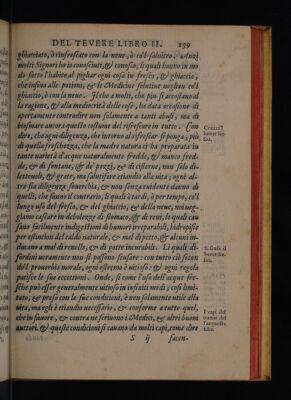 DEL TEVERE LIBRO II. 199
ghiacciato, ò rinfrescato con la neue, ò co'l salnitro. Anzi
molti Signori ho io conosciuti, & conosco, li quali hanno in mo
do fatto l'habito al pigliar ogni cosa in fresco, & ghiaccio,
che insino alle pitime, & le Medicine solutiue uoglion co'l
ghiaccio, ò con la neue. Ilche à molti, che piu si accostano al
la ragione, & alla mediocrità delle cose, ha data occasione di
apertamente contradire non solamente à tanti abusi, ma di
biasimare ancora questo costume del rifrescare in tutto. Con
dire, che ogni diligenza, che intorno al rifrescar si ponga, piu
di quella freschezza, che la madre natura ci ha preparata in
tante uarietà d'acque naturalmente fredde, & manco fred-
de, & di fontane, & de' pozzi, & di cisterne, non solo di-
letteuoli, & grate, ma salutifere etiandio alla uita; ogni al-
tra sia diligenza souerchia, & non senza euidente danno di
quelli, che fanno il contrario, li quali ò tardi, ò per tempo, co'l
lungo uso del fresco, & del ghiaccio, & della neue, noi ueg-
giamo cascare in debolezze di stomaco, & di reni, le quali cau
sano facilmente indigestioni di humori irreparabili, hidropisie
per estintion del calde naturale, & mal di petto, & alcuni in-
ducono a mal di renelle, & di gotte incurabili. Li quali di-
sordini ueramente non si possono scusare: con tutto ciò secon
do'l prouerbio morale, ogni estremo è uitioso: & ogni regola
patisce le sue eccettioni. Onde, si come l'uso dell'acque fre-
sche può esser generalmente uitioso in infiniti modi; così limi-
tato, & preso con le sue condicioni, è non solamente utile alla
uita, ma egli è etiandio necessario, & conforme a tutto quel,
che in fauore, & contra ne scriuono i Medici, & altri buoni
auttori. & queste condicioni si cauano da molti capi, come dire
S ij facen-
Contra'l
beuer fre-
sco.
Si scusa il
beuer fre-
sco.